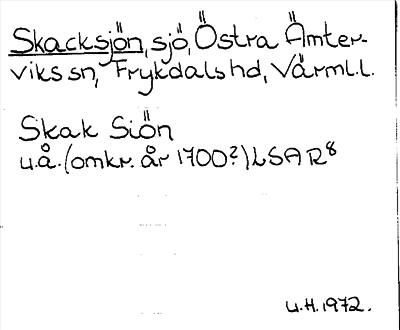 Skacksjön, sjö, Östra Ämter-
viks sn, Frykdals hd, Värml.l.
Skak Siön
u.å. (omkr. år 1700?) LSA R8
U.H. 1972.